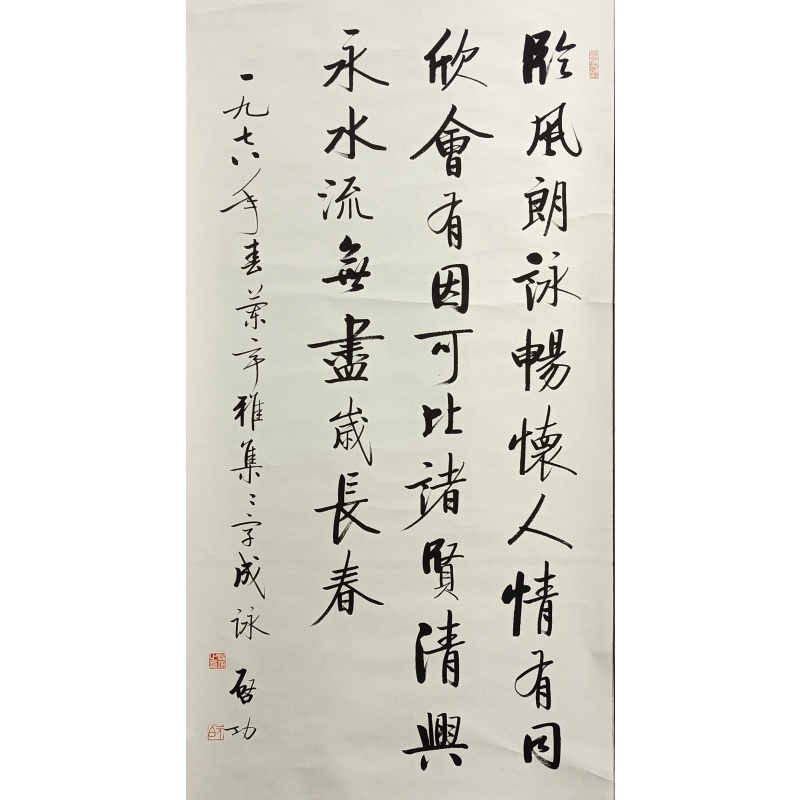 臨風朗詠暢懷人情有同
欣會有因可比諸賢清興
永水流無盡歲長春
一九七八年春蘭亭雅集〻字成詠
啓功